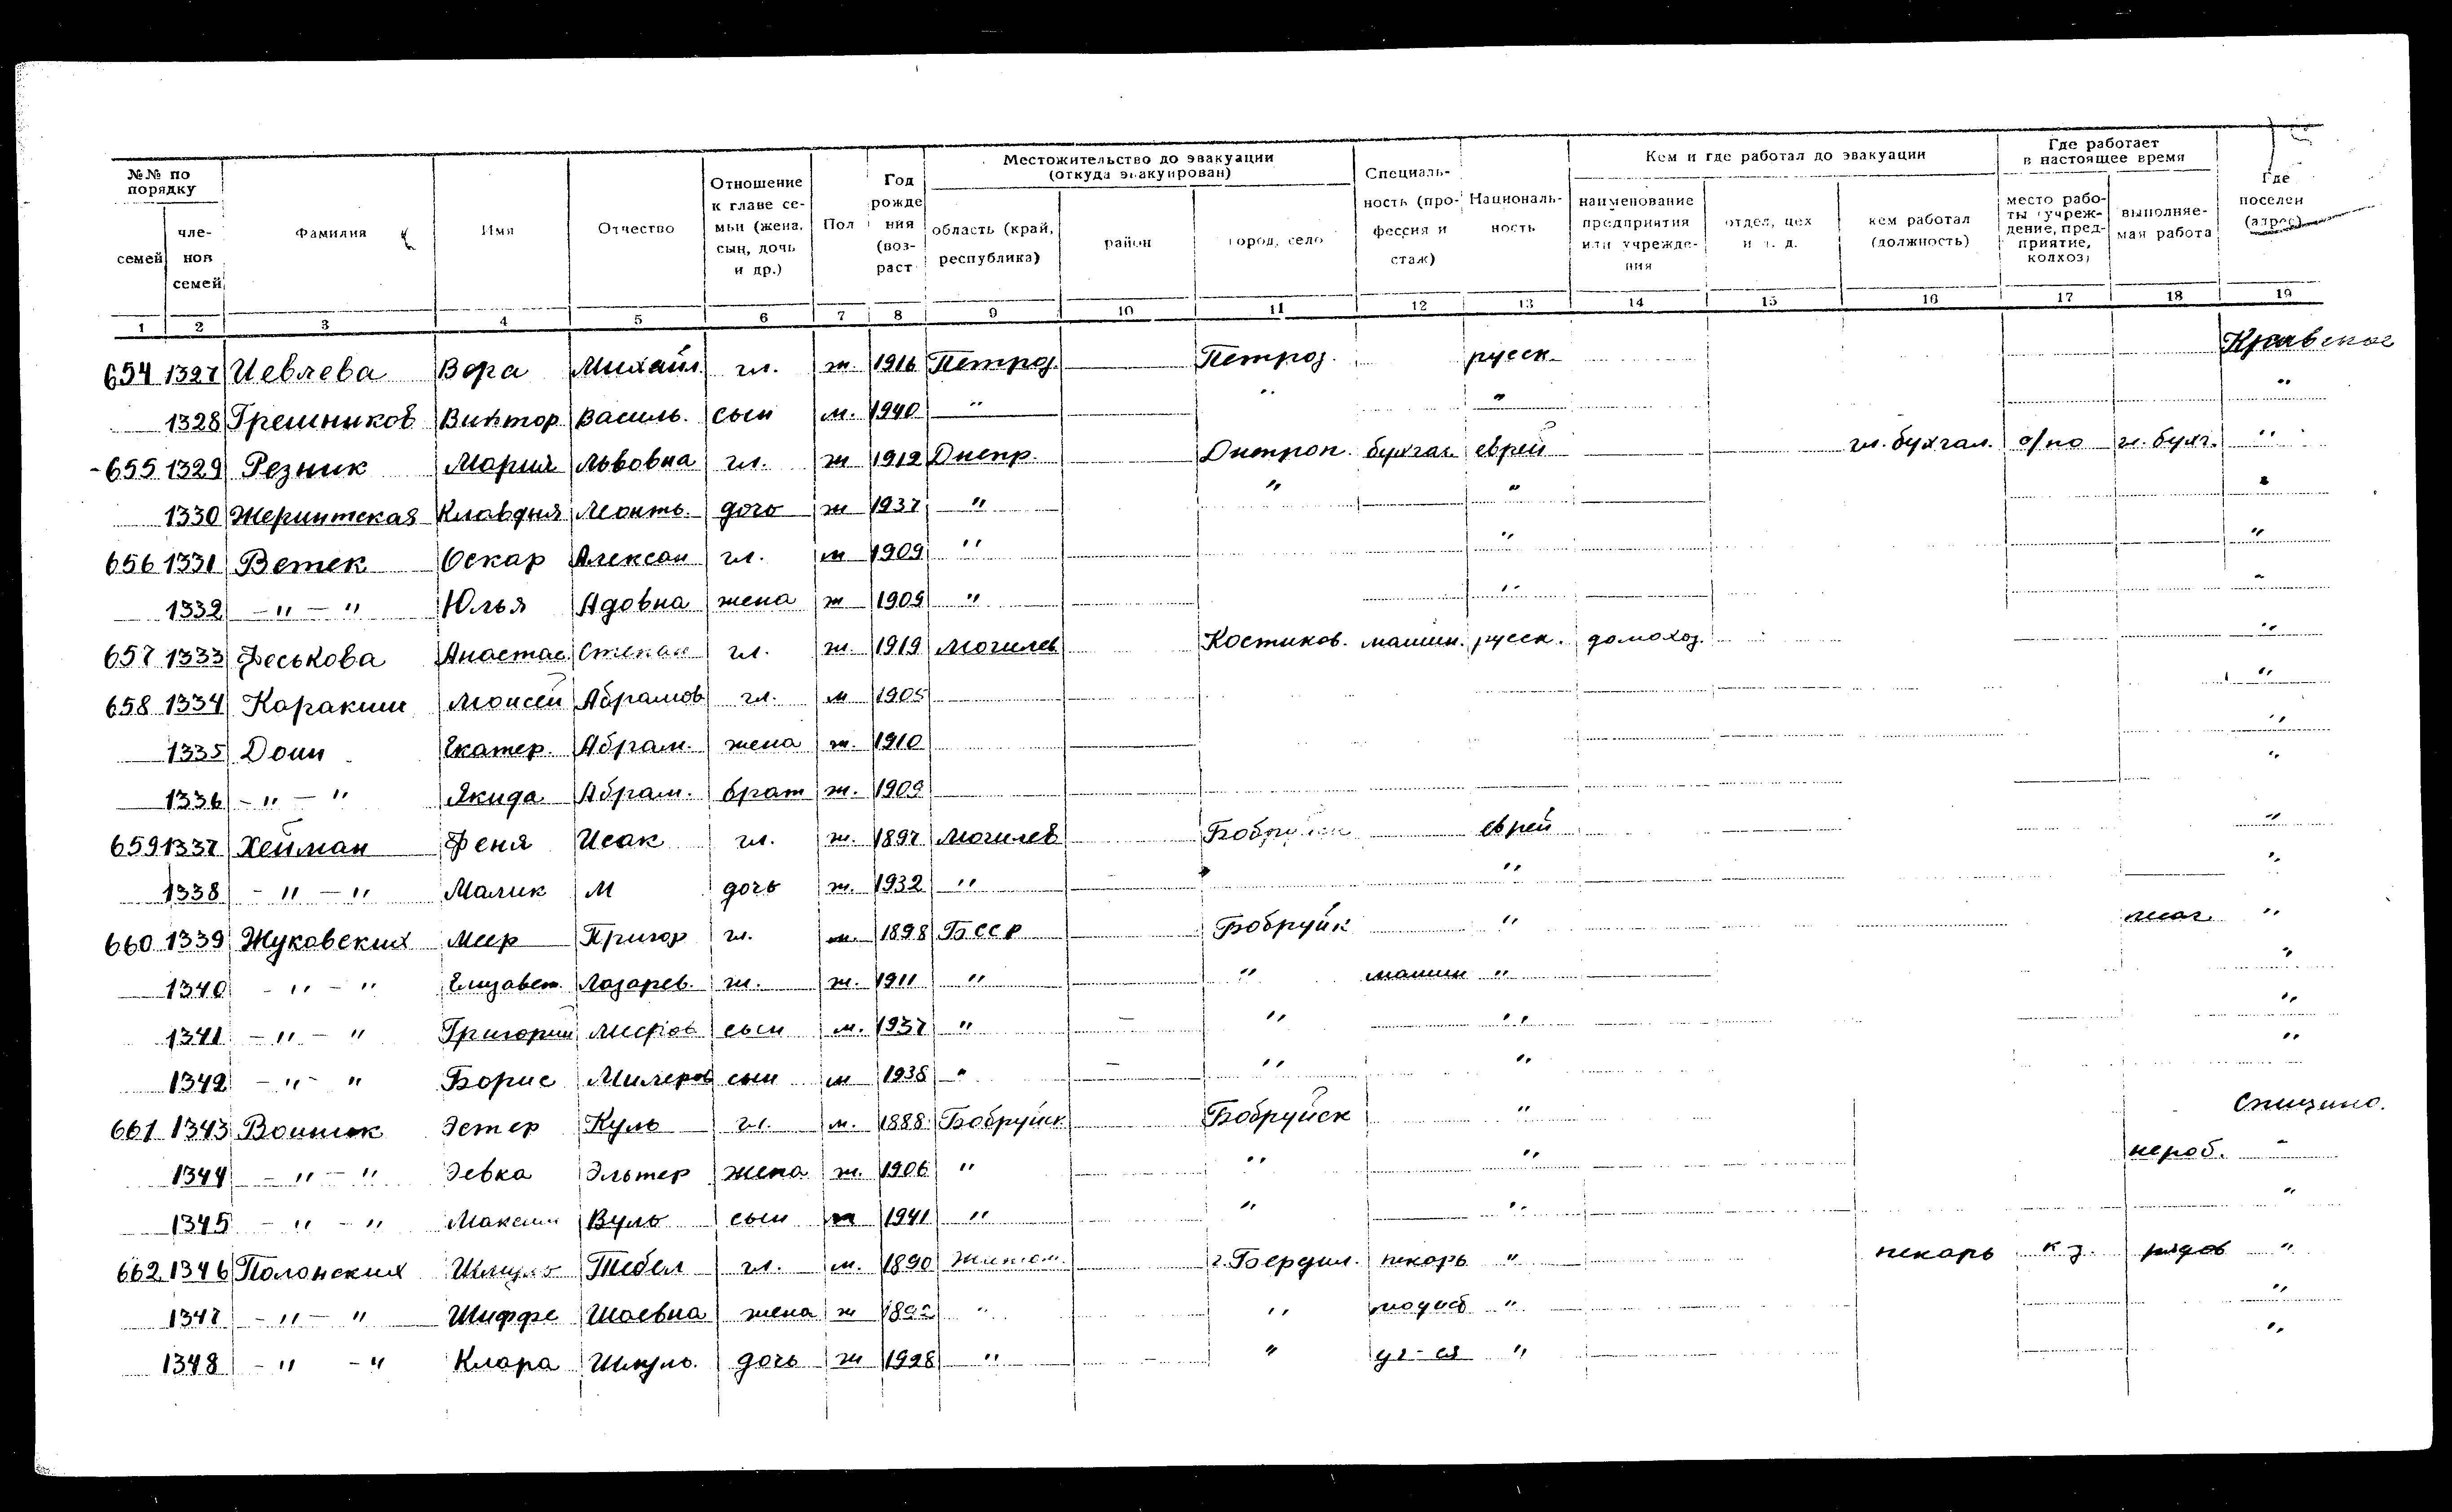 №№ по порядку
семей
членов семей
Фамилия
Имя
Отчество
Отношение к главе семьи (жена, сын, дочь и др.)
Пол
Год рождения (возраст
Местожительство до эвакуации (откуда эвакуирован)
область (край, республика)
район
город, село
Специальность (профессия и стаж)
Национальность
Кем и где работал до эвакуации
наименование предприятия или учреждения
отдел, цех и т. д.
кем работал (должность)
Где работает в настоящее время
место работы (учреждение, предприятие, колхоз)
выполняемая работа
Где поселен (адрес)
1 2 3 4 5 6 7 8 9 10 11 12 13 14 15 16 17 18 19
654 1327 Иевлева Вера Михайл. гл. ж 1916 Петроз. Петроз. русск.
1328 Грешников Виктор Василь. сын м. 1940 " " " "
655 1329 Резник Мария Львовна гл. ж 1912 Днепр. Днепроп. бухгал. еврей гл. бухгал. с/по гл. бухг. "
1330 Клавдия Леонть. дочь ж 1937 " " " "
656 1331 Ветек Оскар Алексан гл. м 1909 " " "
1332 -"-" Юлья Адовна жена ж 1909 " " "
657 1333 Феськова Анастас. Степан гл. ж. 1919 Могилев Костюков. машин. русск. домохоз. "
658 1334 Каракиш Моисей Абрамов гл. м 1905 "
1335 Доин Екатер. Абрам. жена ж. 1910 "
1336 -"-" Якида Абрам. брат ж. 1909 "
659 1337 Хейман Феня Исак гл. ж. 1897 Могилев еврей "
1338 -"-" Малик М дочь ж. 1932 " " "
660 1339 Жуковских Меер Григор гл. м. 1898 Бсср Бобруйк " "
1340 -"-" Елизавет. Лазарев. ж. ж. 1911 " " машин " "
1341 -"-" Григорий сын м. 1937 " " " "
1342 -"-" Борис сын м 1938 " " " "
661 1343 Эстер Куль гл. м. 1888 Бобруйск Бобруйск " Спицино.
1344 -"-" Зевка Эльтер жена ж. 1906 " " " нераб. "
1345 -"-" Максим Вуль сын м 1941 " " " "
662 1346 Полонских гл. м. 1890 Житом. г. Бердич. пекарь " пекарь к-з. рядов "
1347 -"-" Шиффе Шаевна жена ж 1892 " " " "
1348 -"-" Клара Шмуль. дочь ж 1928 " " уч-ся " "